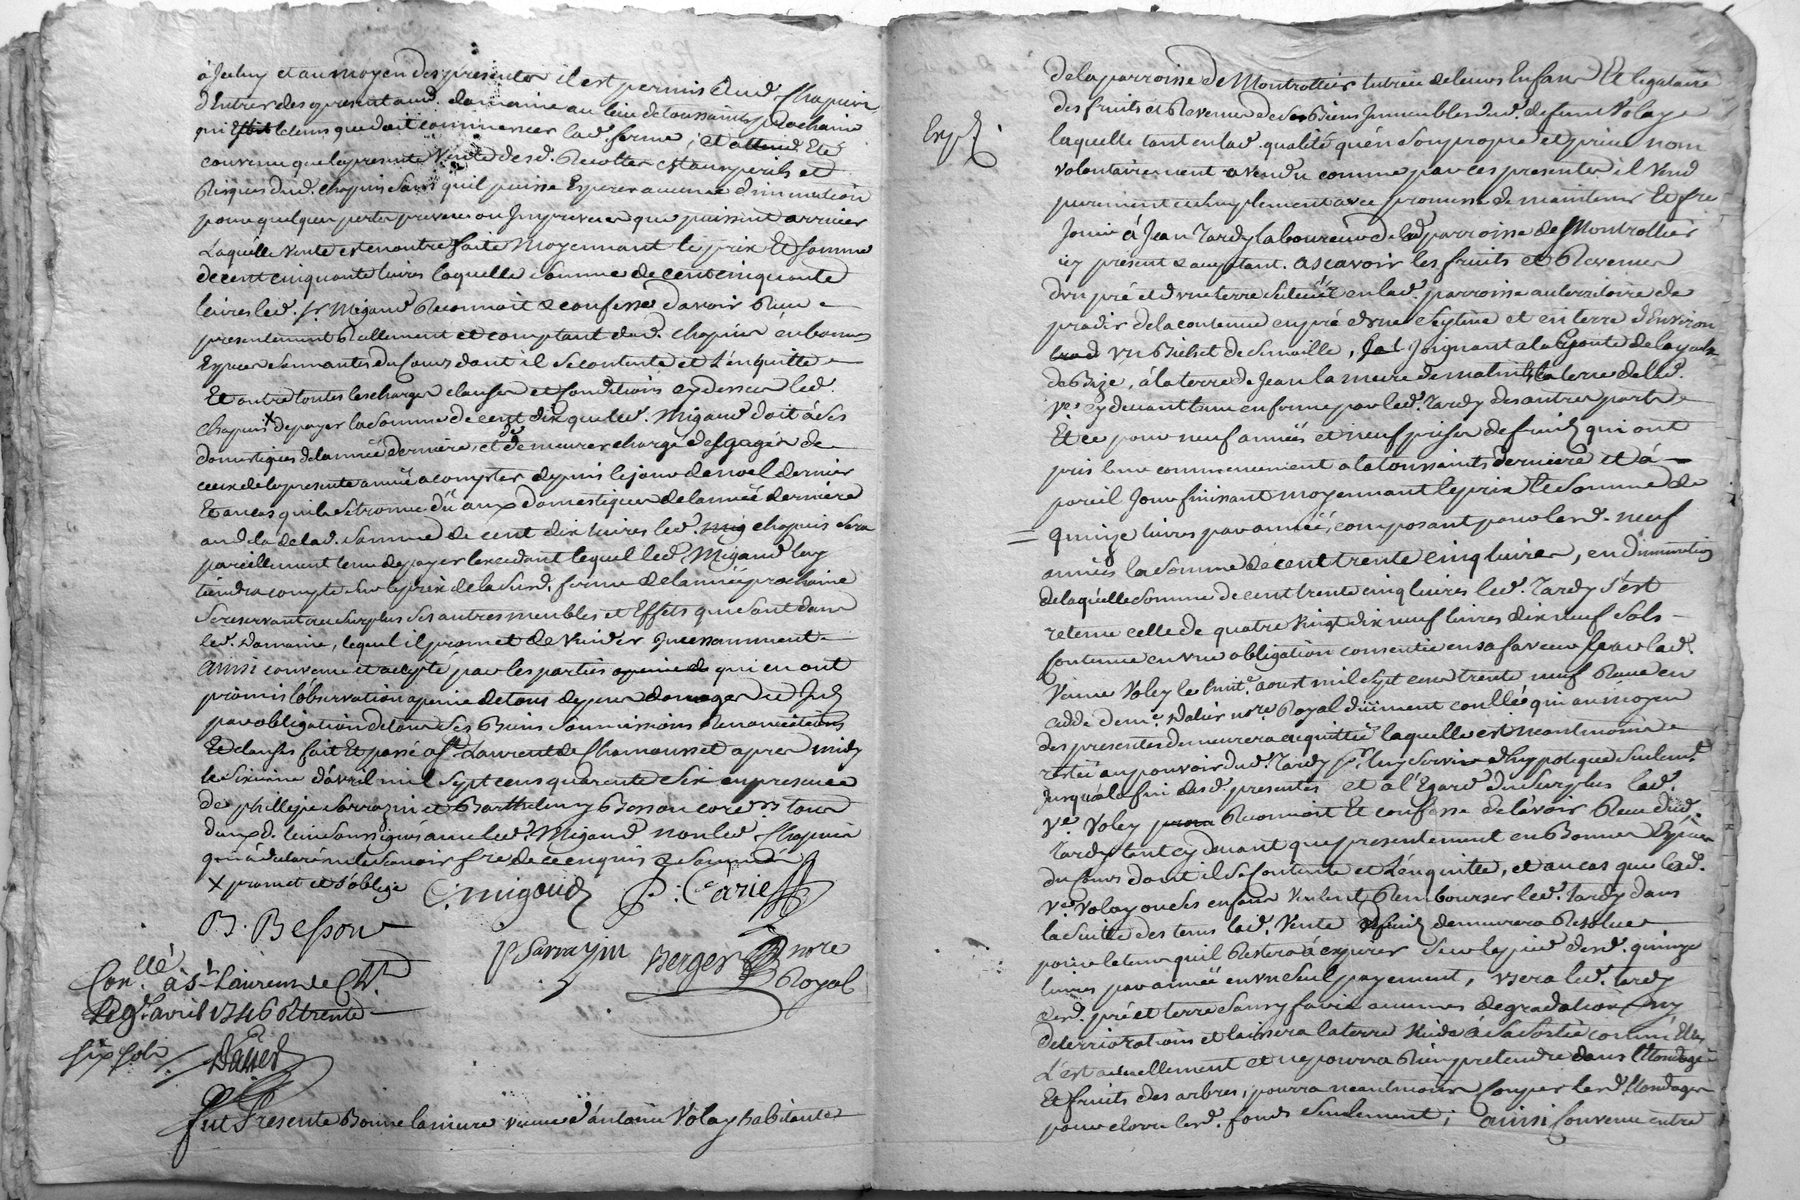 et au moyen des presentes il est permis aud. Chapuis
d'Entrer des apresent aud. domaine au lieu de toussaints prochaine
qui Estoit le tems que doit commencer lad. ferme, et Eté
convenu que la presente Vente desd. Recoltes est aux perils et
Risques dud. Chapuis sans qu'il puisse Esperer aucune diminution
pour quelques pertes prevues ou Impreveues que puissent arriver
Laquelle vente est en outre faite moyennant le prix Et somme
de cent cinquante livres laquelle somme de cent cinquante
livres led. sr. Migaud Reconnoit & confesse d'avoir Reçu
presentement Reellement et comptant dud. Chapuis en bonnes
Especes sonnantes du Cours dont il se contente et L'enquitte
Et outre toutes les charges clauses et Conditions cy dessus led.
Chapuis x de payer la somme de cent dix que led. Migaud doit à ses
domestiques de l'année derniere, et de demeurer chargé des gages de
ceux de la presente année a compter depuis le jour de noel dernier
Et au cas qu'il se trouve dû aux domestiques de l'année derniere
au dela de lad. somme de cent dix livres led. mig chapuis sera
pareillement tenu de payer l'excedant lequel led. Migaud luy
tiendra compte sur le prix de la susd. ferme de l'année prochaine
Se reservant au surplus ses autres meubles et Effets qui sont dans
led. Domaine, lequel il promet de vuider Incessamment
ainsi convenu et accepté par les parties qui en ont
promis l'observation a peine de tous depens domages et
par obligation de tous ses Biens soumissions Renonciations
Et clauses fait Et passé a St. Laurent de Chamousset apres midy
le sixieme d'avril mil sept cens quarente six en presence
de phillipe Sarrazin et Barthelemy Besson tous
deux d. lieu soussignés avec led. Migaud non led. Chapuis
qui a declaré ne le sçavoir fre. de ce enquis & sommé
x promet et s'oblige
C. migaud P. Carie
B. Besson
P Sarrazin Berger nore Royal
Con.llé à St Laurens de Ch.
le 9e avril 1746 R trente
six sols
Fut Presente Bonne lamure veuve d'antoine Volay habitante
de la parroisse de Montrottier tutrice de leurs Enfans Et legataire
des fruits et Revenus de ses Biens Immeubles dud. defunt Volay
Exp.
laquelle tant en lad. qualité qu'en son propre et privé nom
volontairement a vendu comme par ces presentes il Vend
purement et simplement avec promesse de maintenir Et fre
Jouir à Jean Tardy laboureur de lad. parroisse de Montrottier
icy present & acceptant. Ascavoir les fruits et Revenus
d'un pré et d'une terre situés en lad. parroisse au territoire de
pradir de la contenue en pré d'une seytive et en terre d'Environ
un Bichet de semaille, Joignant a la
de Bize, à la terre de Jean lamure de matin, la terre de lad.
Ve. cy devant tenu en ferme par led. Tardy des autres parts
Et ce pour neuf années et neuf prises de fruits qui ont
pris leur commencement a la toussaints derniere et à
pareil Jour finissant moyennant le prix Et somme de
quinze livres par année, composant pour lesd. neuf
années la somme de cent trente cinq livres, en diminution
de laquelle somme de cent trente cinq livres led. Tardy s'est
retenu celle de quatre vingt dix neuf livres dix neuf sols
Contenue en une obligation consentie en sa faveur par lad.
Veuve Volay le huit. aoust mil sept cens trente neuf Reçue en
cedde de me. Dalier nore. Royal düement conllé qui au moyen
des presentes demeurera acquittée laquelle est neantmoins
restée au pouvoir dud. Tardy pr. luy servir d'hypoteque seulemt.
Jusqu'a la fin desd. presentes et a l'Egard du surplus lad.
Ve. Volay Reconnoit Et confesse de l'avoir Reçu dud.
Tardy tant cy devant que presentement en Bonnes Especes
du Cours dont il se contente et L'enquitte, et au cas que lad.
Ve. Volay ou ses enfans veulent Rembourser led. Tardy dans
la suitte des tems lad. Vente de fruits demeurera Resolue
pour le tems qu'il Restera à expirer sur le pied desd. quinze
livres par année en un seul payement, usera led. Tardy
desd. pré et terre sans y faire aucunes degradations ny
deteriorations et laissera la terre vuide a sa sortie comme elle
L'est actuellement et ne pourra Rien pretendre dans
Et fruits des arbres, pourra neantmoins Couper lesd.
pour clorre lesd. fonds seulement; ainsi Convenu entre